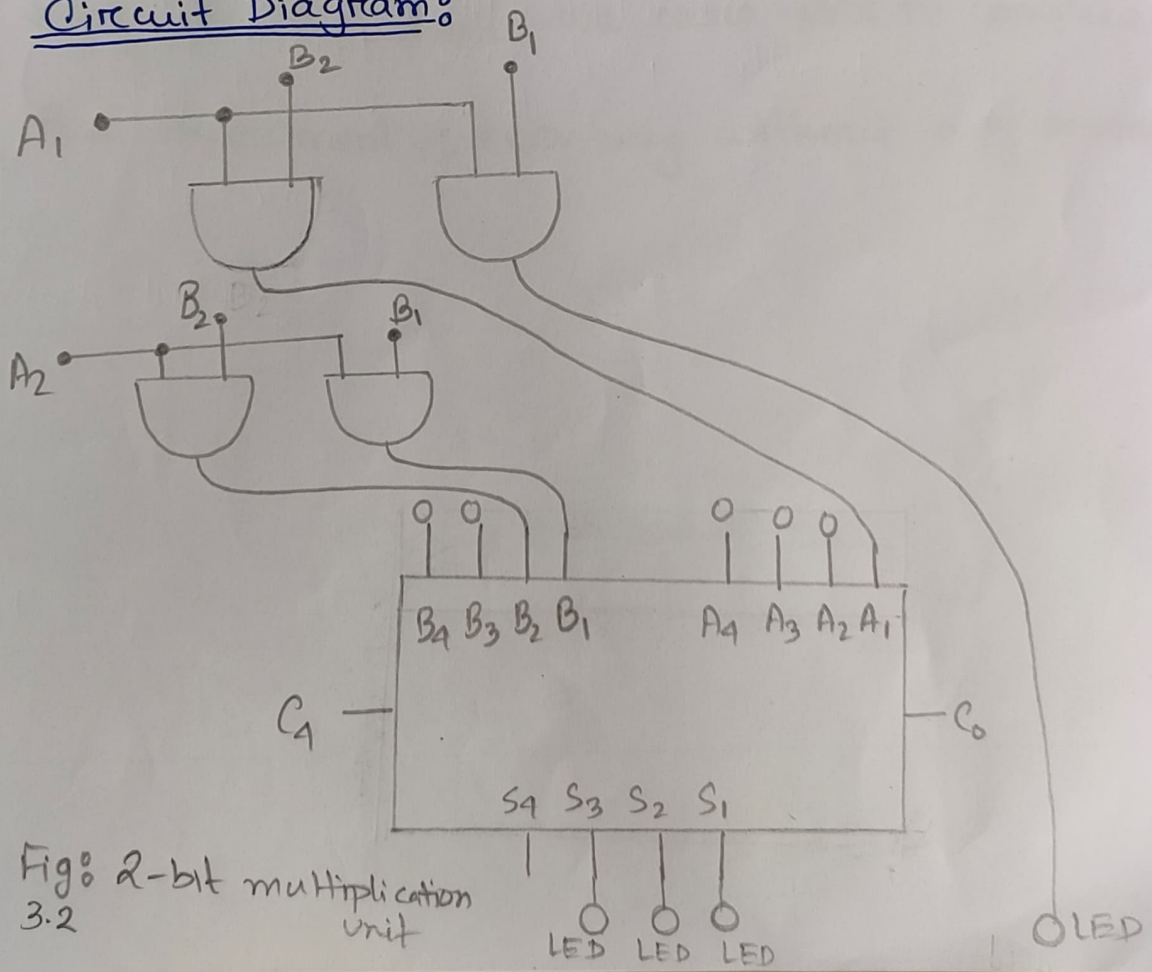 Circuit Diagram:
B₁
B₂
A₁
B₂
B₁
A₂
0 0 0 0 0
B₄ B₃ B₂ B₁ A₄ A₃ A₂ A₁
C₄ C₀
S₄ S₃ S₂ S₁
Fig: 2-bit multiplication
3.2 unit
LED LED LED LED